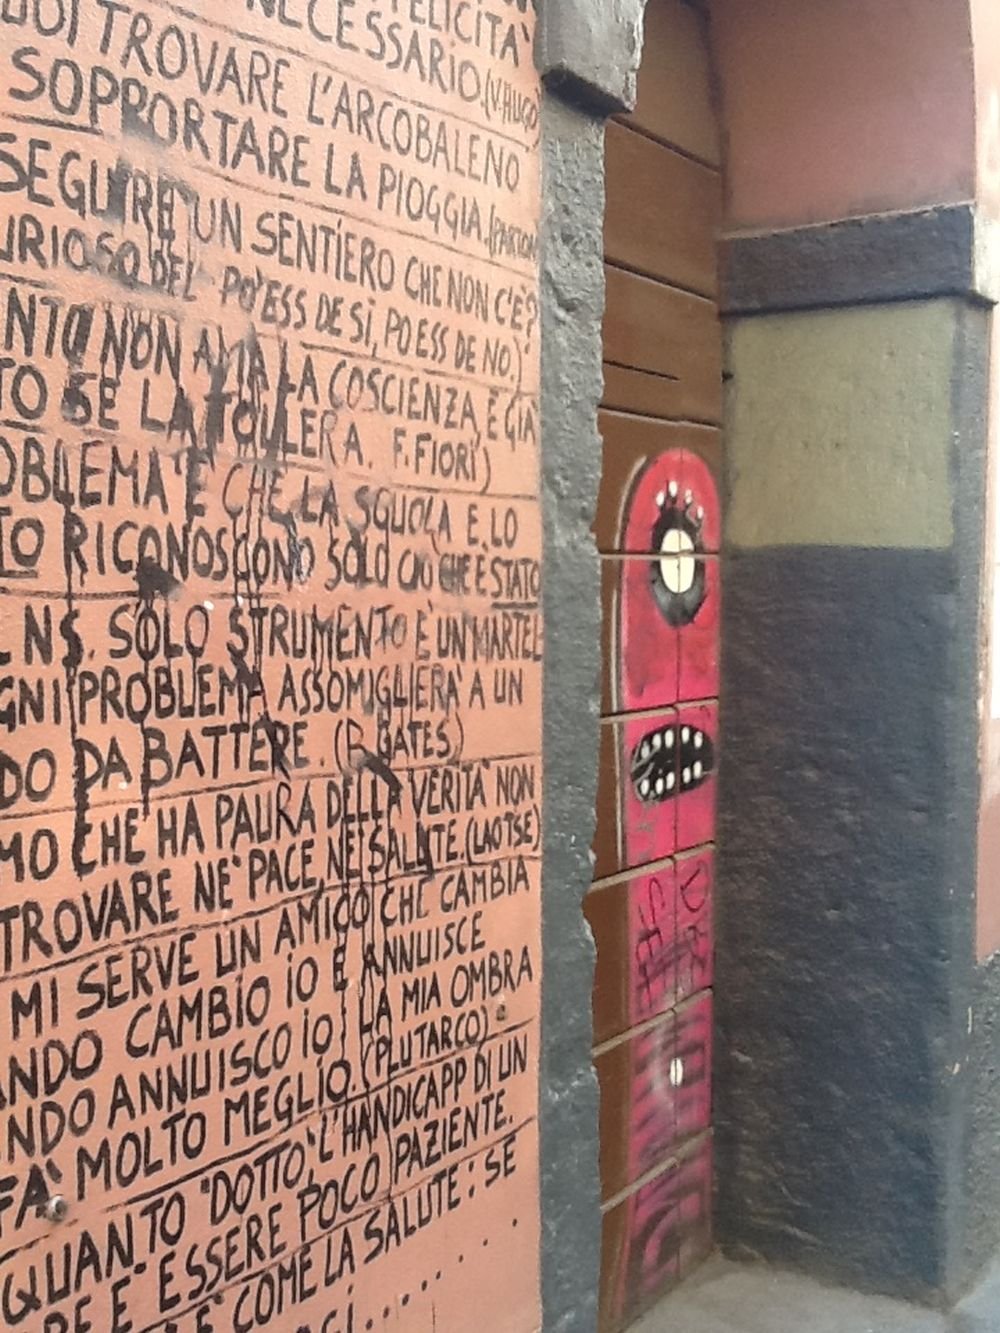 FELICITÀ
NECESSARIO. (V. HUGO)
TROVARE L'ARCOBALENO
SOPPORTARE LA PIOGGIA.
SEGUIRE UN SENTIERO CHE NON C'È?
DEL PO' ESS DE SÌ, PO ESS DE NO.)
NON AMA LA COSCIENZA, È GIÀ
SE LA TOLLERA. F. FIORI)
È CHE LA SQUOLA E LO
RICONOSCONO SOLO CIÒ CHE È STATO
SOLO STRUMENTO È UN MARTEL
PROBLEMA ASSOMIGLIERÀ A UN
DO DA BATTERE. (B. GATES)
MO CHE HA PAURA DELLA VERITÀ NON
TROVARE NE' PACE, NE' SALUTE. (LAOTSE)
MI SERVE UN AMICO CHE CAMBIA
ANDO CAMBIO IO E ANNUISCE
NDO ANNUISCO IO; LA MIA OMBRA
FA' MOLTO MEGLIO. (PLUTARCO)
QUANTO "DOTTO", L'HANDICAPP DI UN
RE E' ESSERE POCO PAZIENTE.
E' COME LA SALUTE: SE